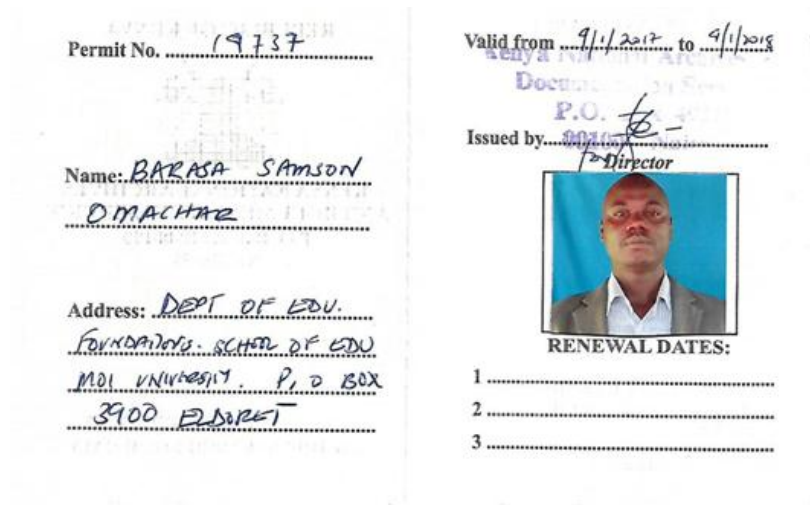 Permit No. 19737
Name: BARASA SAMSON
OMACHAR
Address: DEPT OF EDU.
FOUNDATIONS. SCHOOL OF EDU
MOI UNIVERSITY. P, O BOX
3900 ELDORET
Valid from 9/1/2017 to 9/1/2018
Kenya National Archives
Documentation
P.O.
Issued by
00100
Director
RENEWAL DATES:
1
2
3